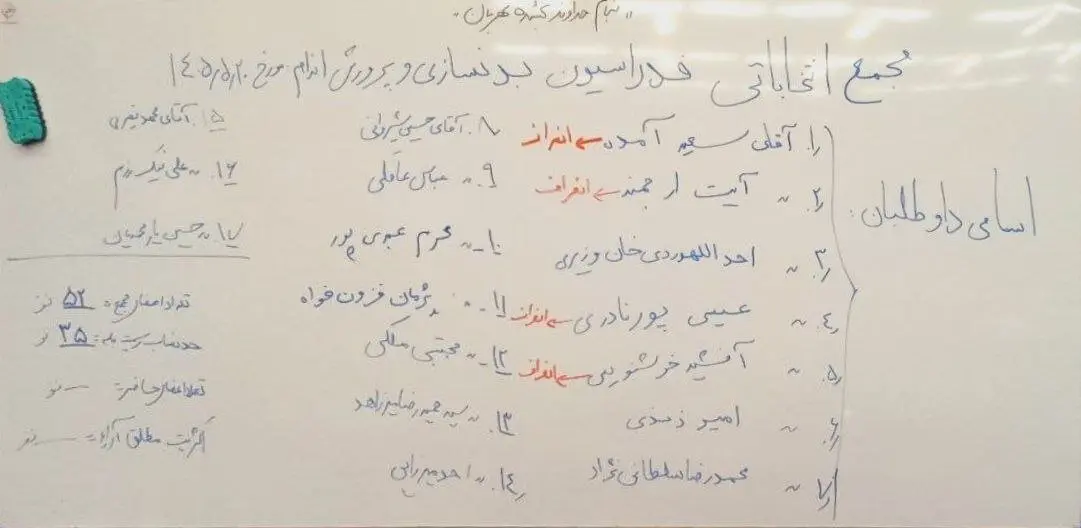 "بنام خداوند بخشنده مهربان"
مجمع انتخاباتی فدراسیون بدنسازی و پرورش اندام مورخ ۱۴۰۵/۵/۲۰
اسامی داوطلبان:
۱. آقای سعید آمده ← انصراف
۲. ~ آیت ارجمند ← انصراف
۳. ~ احد اللهوردی خان وزیری
۴. ~ عیسی پورنادری ← انصراف
۵. ~ آفشید خوشنویس ← انصراف
۶. ~ امیر زندی
۷. ~ محمدرضا سلطانی نژاد
۸. آقای حسین شیروانی
۹. ~ عباس عاملی
۱۰. ~ محرم عبدی پور
۱۱. ~ پژمان فزون خواه
۱۲. ~ مجتبی ملکی
۱۳. ~ سید حمیدرضا
۱۴. ~ احد میرزایی
۱۵. آقای محمود
۱۶. ~ علی نیک رزم
۱۷. ~ حسین یارمحمدیان
تعداد اعضای مجمع: ۵۲ نفر
حد نصاب رسمیت جلسه: ۳۵ نفر
تعداد اعضای حاضر: — نفر
اکثریت مطلق آراء: — نفر